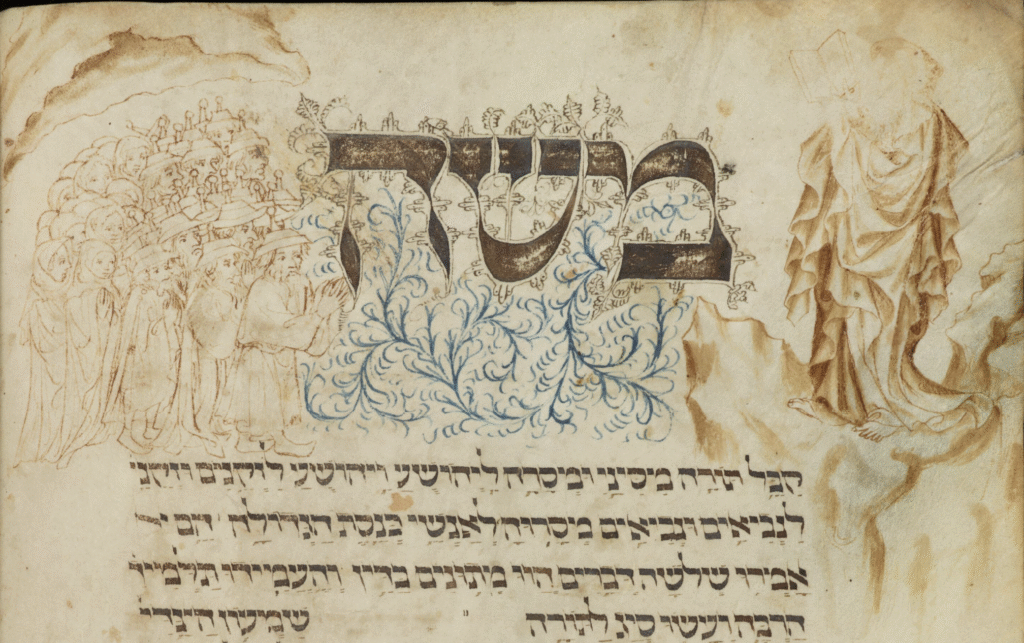 משה
קבל תורה מסיני ומסרה ליהושע ויהושע לזקנים וזקני
לנביאים ונביאים מסרוה לאנשי כנסת הגדולה הם
אמרו שלשה דברים הוו מתונים בדין והעמידו תלמיד
הרבה ועשו סיג לתורה שמעון הצדי